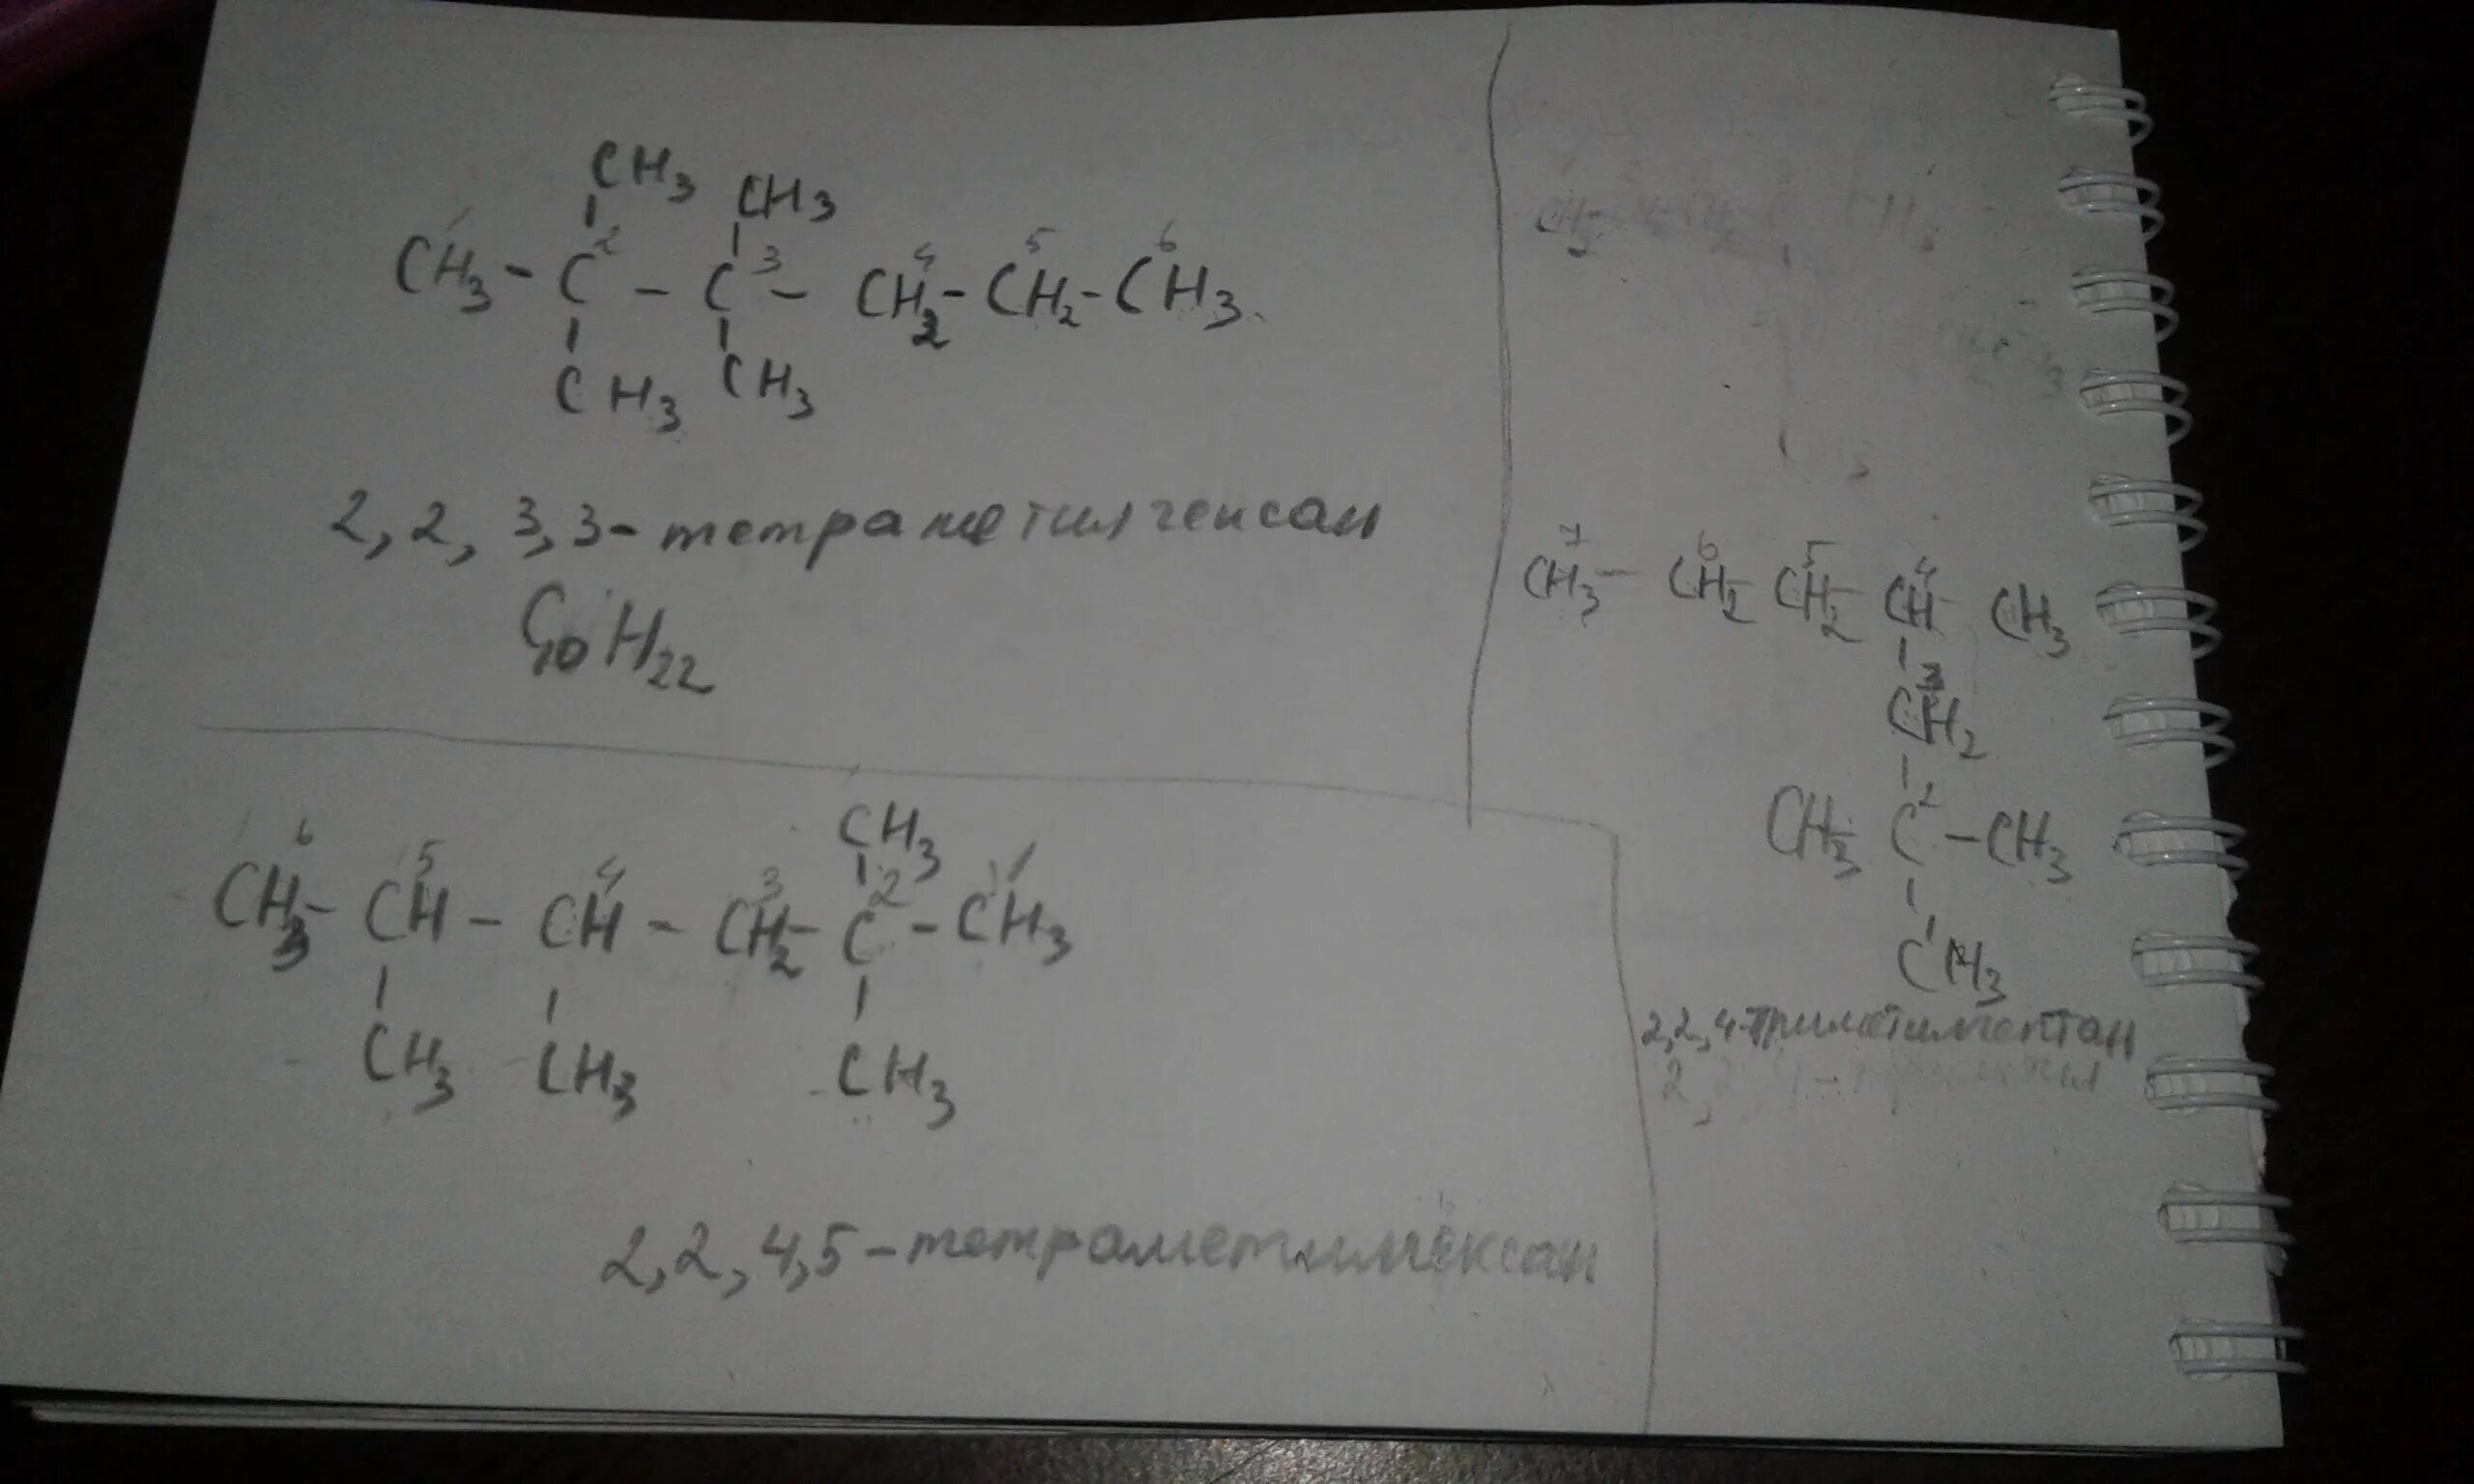 CH₃ CH₃
1 2 3 4 5 6
CH₃ - C - C - CH₂ - CH₂ - CH₃
CH₃ CH₃
2, 2, 3, 3 - тетраметилгексан
C₁₀H₂₂
CH₃
6 5 4 3 2 1
CH₃ - CH - CH - CH₂ - C - CH₃
CH₃ CH₃ CH₃
2, 2, 4, 5 - тетраметилгексан
7 6 5 4
CH₃ - CH₂ - CH₂ - CH - CH₃
3
CH₂
2
CH₃ C - CH₃
1
CH₃
2, 2, 4-триметилгептан